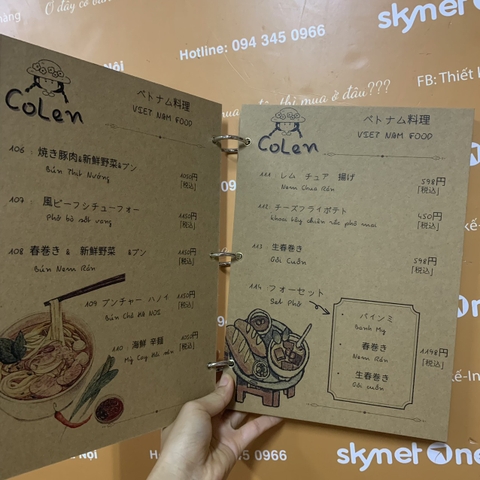 Hotline: 094 345 0966
skynet
FB: Thiết k
CoLen
ベトナム料理
VIET NAM FOOD
106 焼き豚肉&新鮮野菜&ブン
Bún Thịt Nướng
「税込」
107 風ビーフシチューフォー
Phở bò sốt vang
「税込」
108 春巻き & 新鮮野菜 &ブン
Bún Nem Rán
「税込」
109 ブンチャー ハノイ
Bún Chả Hà Nội
「税込」
110 海鮮 辛麺
「税込」
CoLen
ベトナム料理
VIET NAM FOOD
111 レム チュア 揚げ 598円
Nem Chua Rán 「税込」
112 チーズフライポテト 450円
「税込」
113 生春巻き 598円
Gỏi Cuốn 「税込」
114 フォーセット
Set Phở
バインミ
Banh My
春巻き 1198円
Nem Rán 「税込」
生春巻き
Gỏi cuốn
094 345 0966
skynet